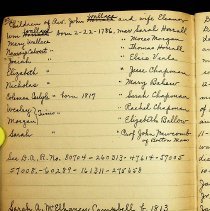 Children of Rev. John Wallace and wife Eleanor
Wm Wallace born 2-22-1786. mar Sarah Horall
Mary Wallace " Moses Morgan
Nancy " Thomas Horall
Josiah "
Elizabeth " Jesse Chapman
Nicholas " Mary Baker
Coleman Carlyle - born 1817 " Sarah Chapman
Wesley } Twins " Rachel Chapman
Morgan " Elizabeth Ballow
Sarah " Prof John Newcomb
of Boston Mass
See D.A.R. No. 80704 - 260313 - 47614 - 57005
57008 - 60289 - 161311 - 275658
Sarah A. McElhaney Campbell b 1813